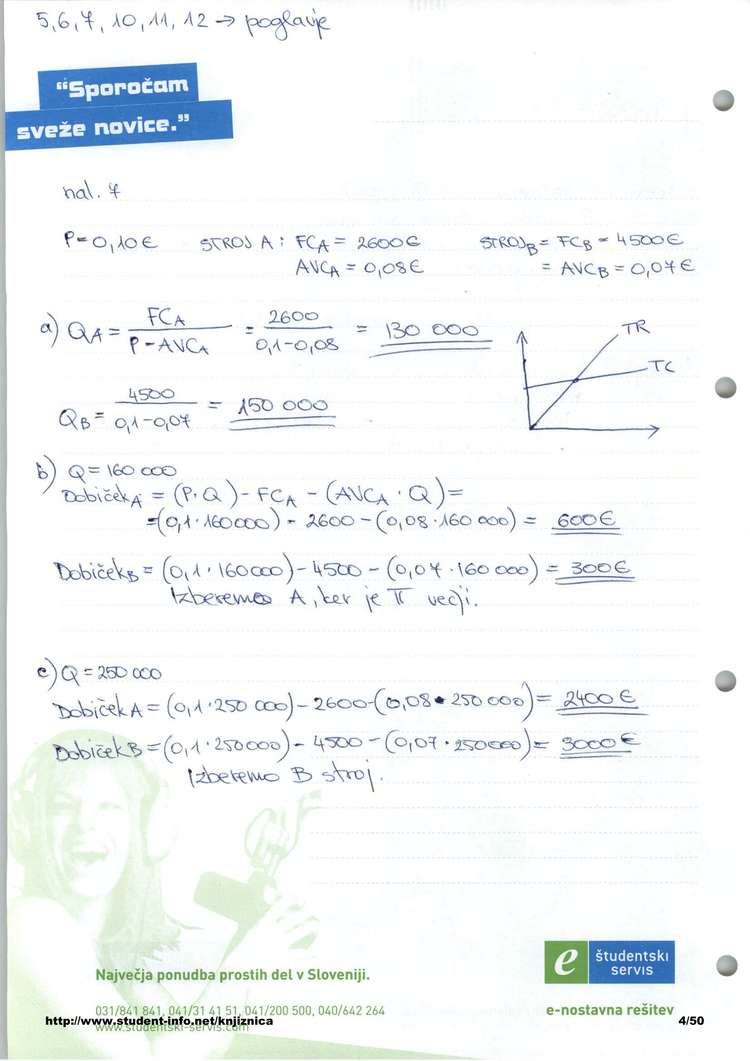 5, 6, 7, 10, 11, 12 → poglavje
“Sporočam
sveže novice.”
nal. 7
P=0,10€ STROJ A: FCA = 2600€ STROJB = FCB = 4500€
AVCA = 0,08€ = AVCB = 0,07€
a) QA = FCA / P-AVCA = 2600 / 0,1-0,08 = 130 000
TR
TC
QB = 4500 / 0,1-0,07 = 150 000
b) Q=160 000
DobičekA = (P·Q) - FCA - (AVCA · Q)=
=(0,1·160000) - 2600 - (0,08·160 000) = 600€
DobičekB = (0,1·160000) - 4500 - (0,07·160 000) = 300€
Izberemo A, ker je π večji.
c) Q = 250 000
Dobiček A = (0,1·250 000) - 2600 - (0,08·250 000) = 2400 €
Dobiček B = (0,1·250000) - 4500 - (0,07·250000) = 3000€
Izberemo B stroj.
e študentski
servis
Največja ponudba prostih del v Sloveniji.
031/841 841, 041/31 41 51, 041/200 500, 040/642 264
e-nostavna rešitev
http://www.student-info.net/knjiznica
4/50
www.studentski-servis.com